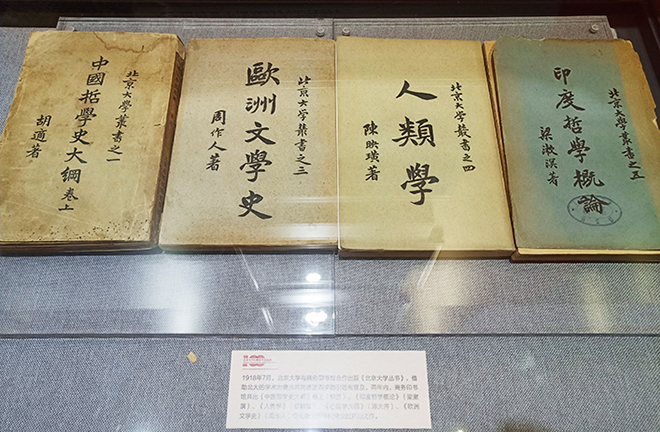 北京大學叢書之一
中國哲學史大綱 卷上
胡適著
北京大學叢書之三
歐洲文學史
周作人著
北京大學叢書之四
人類學
陳映璜著
北京大學叢書之五
印度哲學概論
梁漱溟著
100
1918年7月，北京大学与商务印书馆合作出版《北京大学丛书》，借
助北大的学术
商务印书
馆共出《中国哲学史大纲》
《印度哲学概论》（梁漱
溟）、《人类学》
《欧洲
文学史》